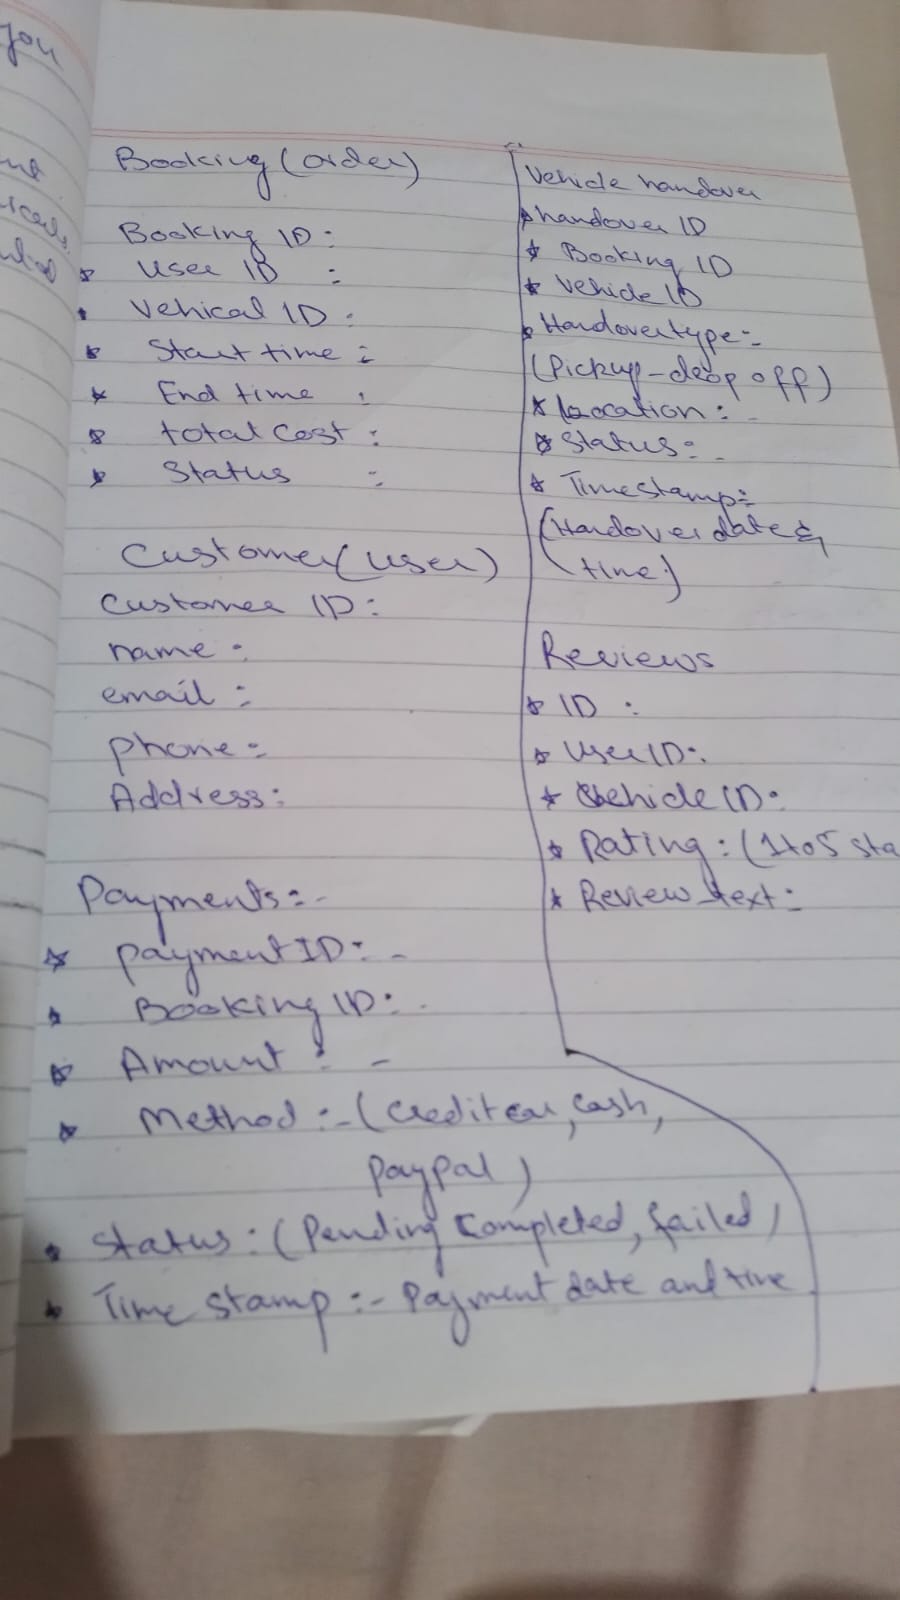 you
Booking (order)
Booking ID:
* User ID :
* Vehical ID :
* Start time :
* End time :
* total cost :
* Status :
Customer (user)
Customer ID:
name :
email :
phone :
Address :
Payments :-
* payment ID: -
* Booking ID: -
* Amount : -
* Method :- (credit car, cash,
paypal)
* Status : (Pending Completed, failed)
* Time stamp :- Payment date and time
Vehicle handover
* handover ID
* Booking ID
* Vehicle ID
* Handover type :-
(Pickup - drop off)
* Location : -
* Status : -
* Timestamp :
(Handover date &
time)
Reviews
* ID :
* User ID :
* Vehicle ID :
* Rating : (1 to 5 sta
* Review text :-